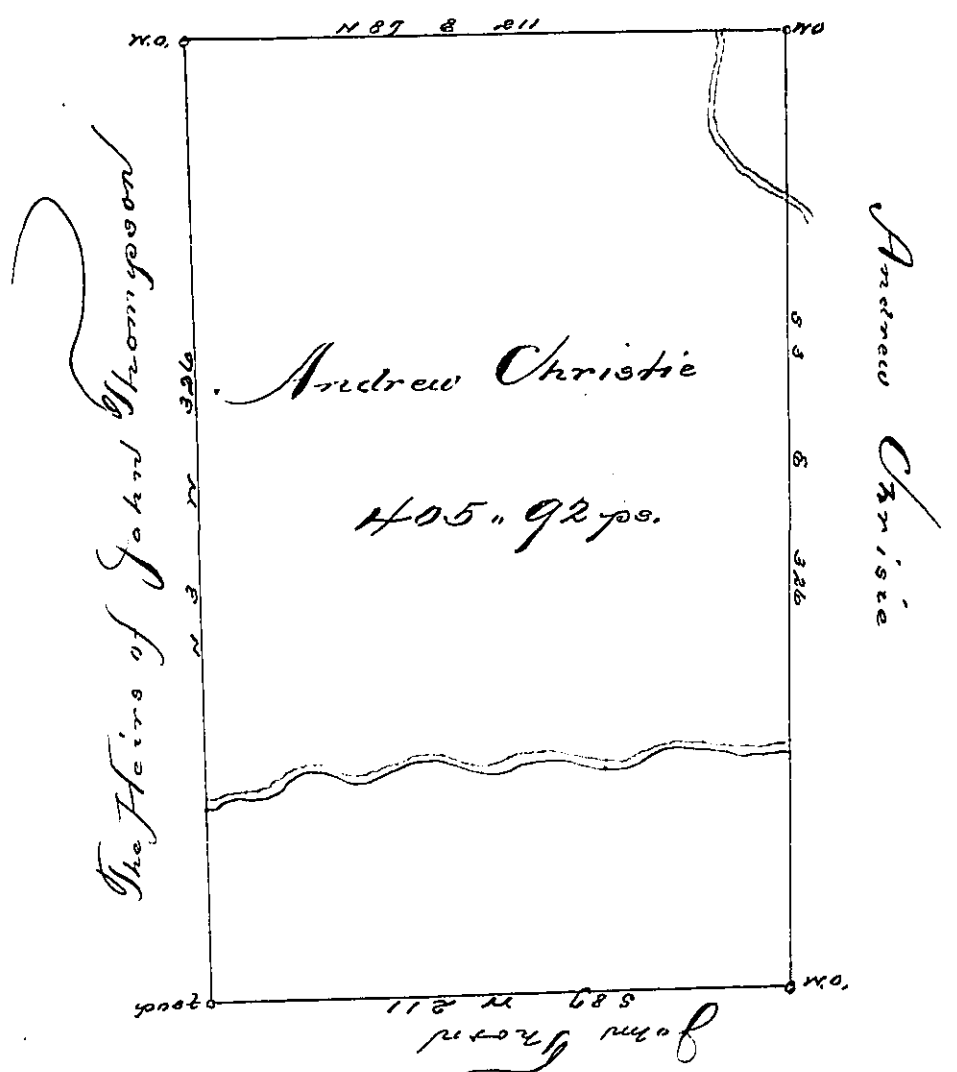 W.O.
N 87 E 211
W O
The Heirs of John Thompson
N 3 W 326
Andrew Christie
405 " 92 ps.
S 3 E 326
Andrew Chrisie
S 87 W 211
W.O.
John Thorn